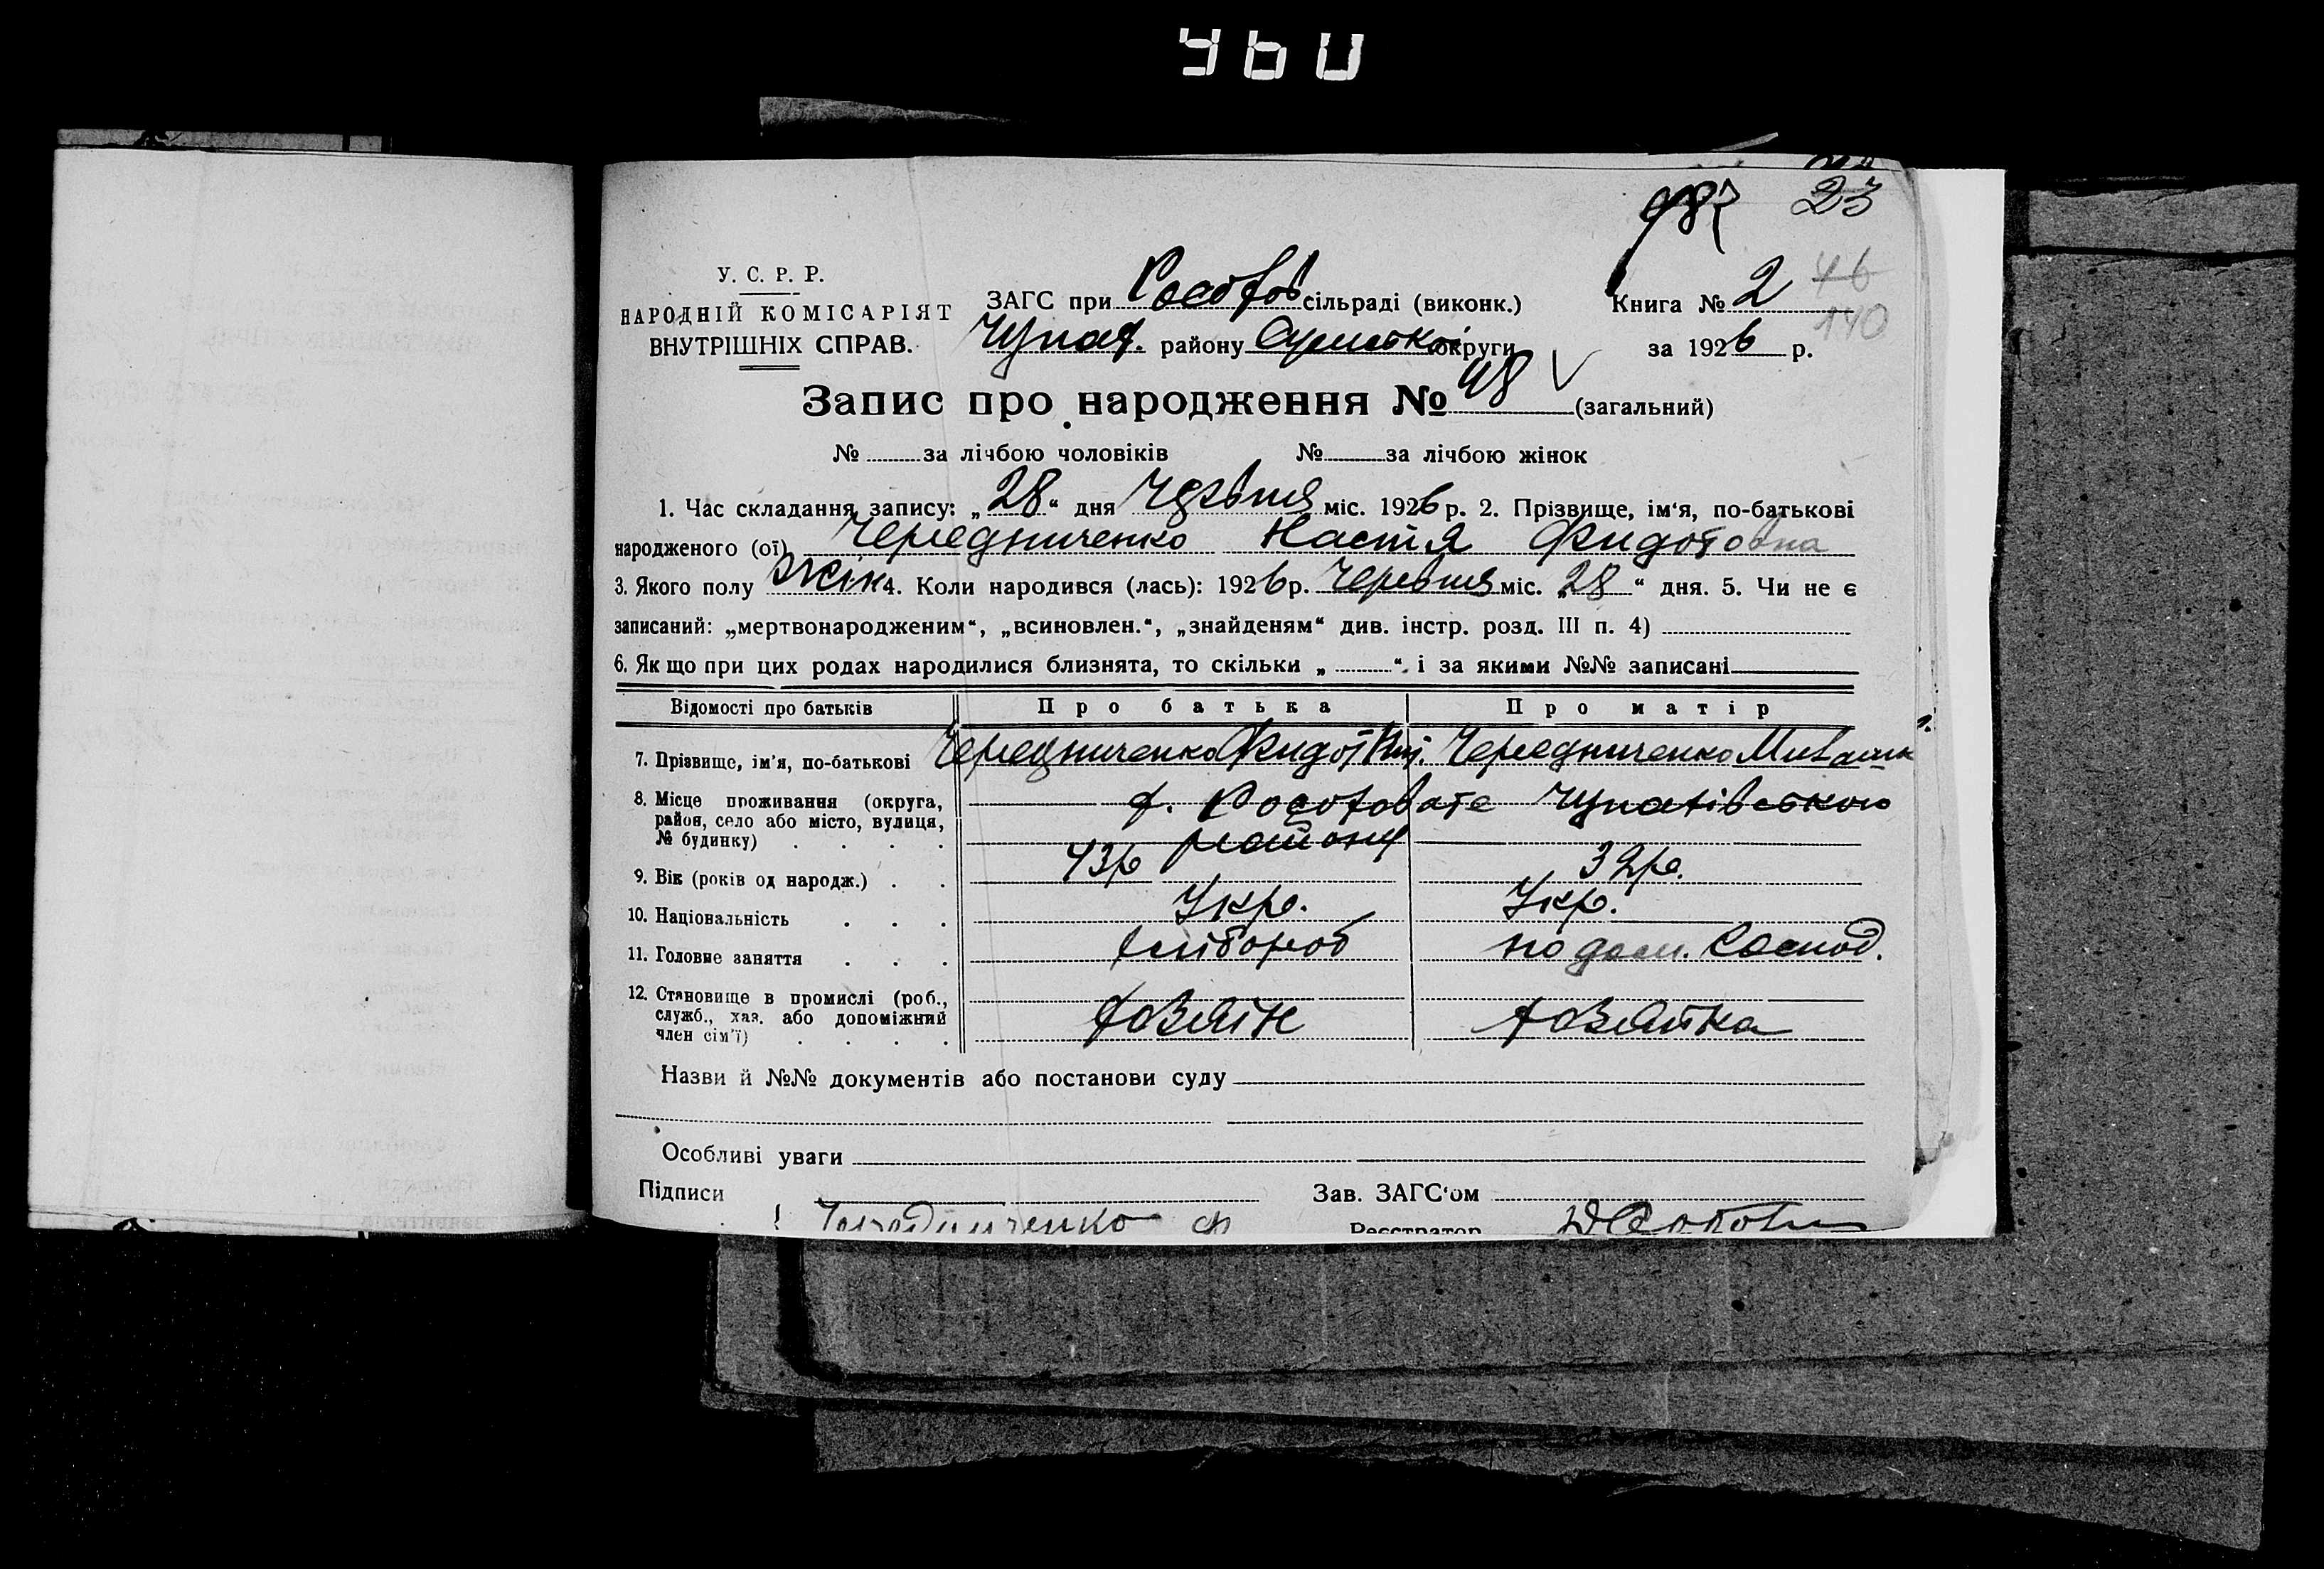 460
987 23
У. С. Р. Р.
НАРОДНІЙ КОМІСАРІЯТ
ВНУТРІШНІХ СПРАВ.
ЗАГС при Росохов сільраді (виконк.)
Чупах. району Сумської округи
Книга № 2 46
140
за 1926 р.
Запис про народження № 48 (загальний)
№ за лічбою чоловіків № за лічбою жінок
1. Час складання запису: „28“ дня Червня міс. 1926 р. 2. Прізвище, ім‘я, по-батькові
народженого (ої) Чередниченко Настя Фидотовна
3. Якого полу жін 4. Коли народився (лась): 1926 р. Червня міс. „28“ дня. 5. Чи не є
записаний: „мертвонародженим“, „всиновлен.“, „знайденям“ див. інстр. розд. III п. 4)
6. Якщо при цих родах народилися близнята, то скільки „ “ і за якими №№ записані
Відомості про батьків Про батька Про матір
7. Прізвище, ім‘я, по-батькові Чередниченко Фидот Чередниченко
8. Місце проживання (округа, район, село або місто, вулиця, № будинку) х. Росоховате Чупахівського
району
9. Вік (років од народж.) 43р 32р.
10. Національність Укр. Укр.
11. Головне заняття хлібороб по дом. Господ.
12. Становище в промислі (роб., служб., хаз. або допоміжний член сім‘ї) хозяїн хозяйка
Назви й №№ документів або постанови суду
Особливі уваги
Підписи Зав. ЗАГС‘ом
Чередниченко Ф Реєстратор